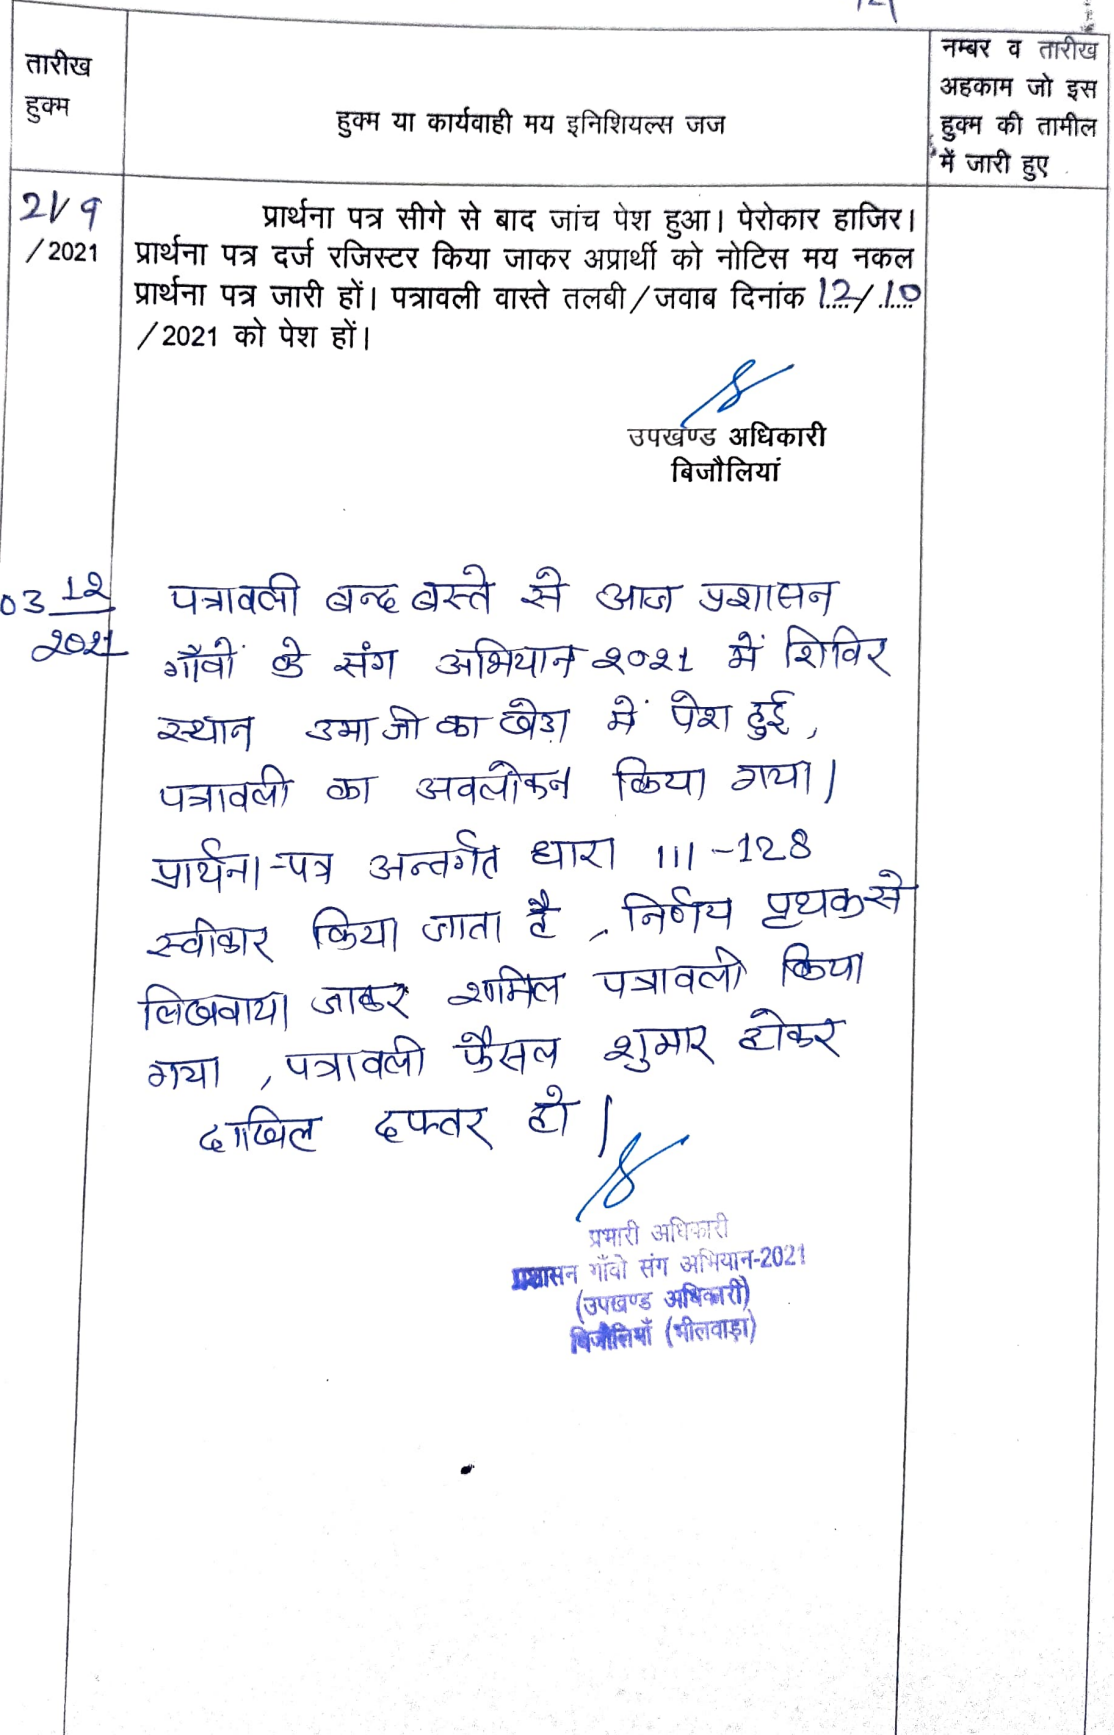 तारीख
हुक्म
हुक्म या कार्यवाही मय इनिशियल्स जज
नम्बर व तारीख
अहकाम जो इस
हुक्म की तामील
में जारी हुए
21/9
/2021
प्रार्थना पत्र सीगे से बाद जांच पेश हुआ। पेरोकार हाजिर।
प्रार्थना पत्र दर्ज रजिस्टर किया जाकर अप्रार्थी को नोटिस मय नकल
प्रार्थना पत्र जारी हों। पत्रावली वास्ते तलबी/जवाब दिनांक 12/10
/2021 को पेश हों।
उपखण्ड अधिकारी
बिजौलियां
03 12
2021
पत्रावली बन्द बस्ते से आज प्रशासन
गाँवों के संग अभियान २०२१ में शिविर
स्थान उमाजी का खेड़ा में पेश हुई,
पत्रावली का अवलोकन किया गया।
प्रार्थना-पत्र अन्तर्गत धारा 111-128
स्वीकार किया जाता है, निर्णय पृथक से
लिखवाया जाकर शामिल पत्रावली किया
गया, पत्रावली फैसल शुमार होकर
दाखिल दफ्तर हो।
प्रभारी अधिकारी
प्रशासन गाँवो संग अभियान-2021
(उपखण्ड अधिकारी)
बिजौलियाँ (भीलवाड़ा)